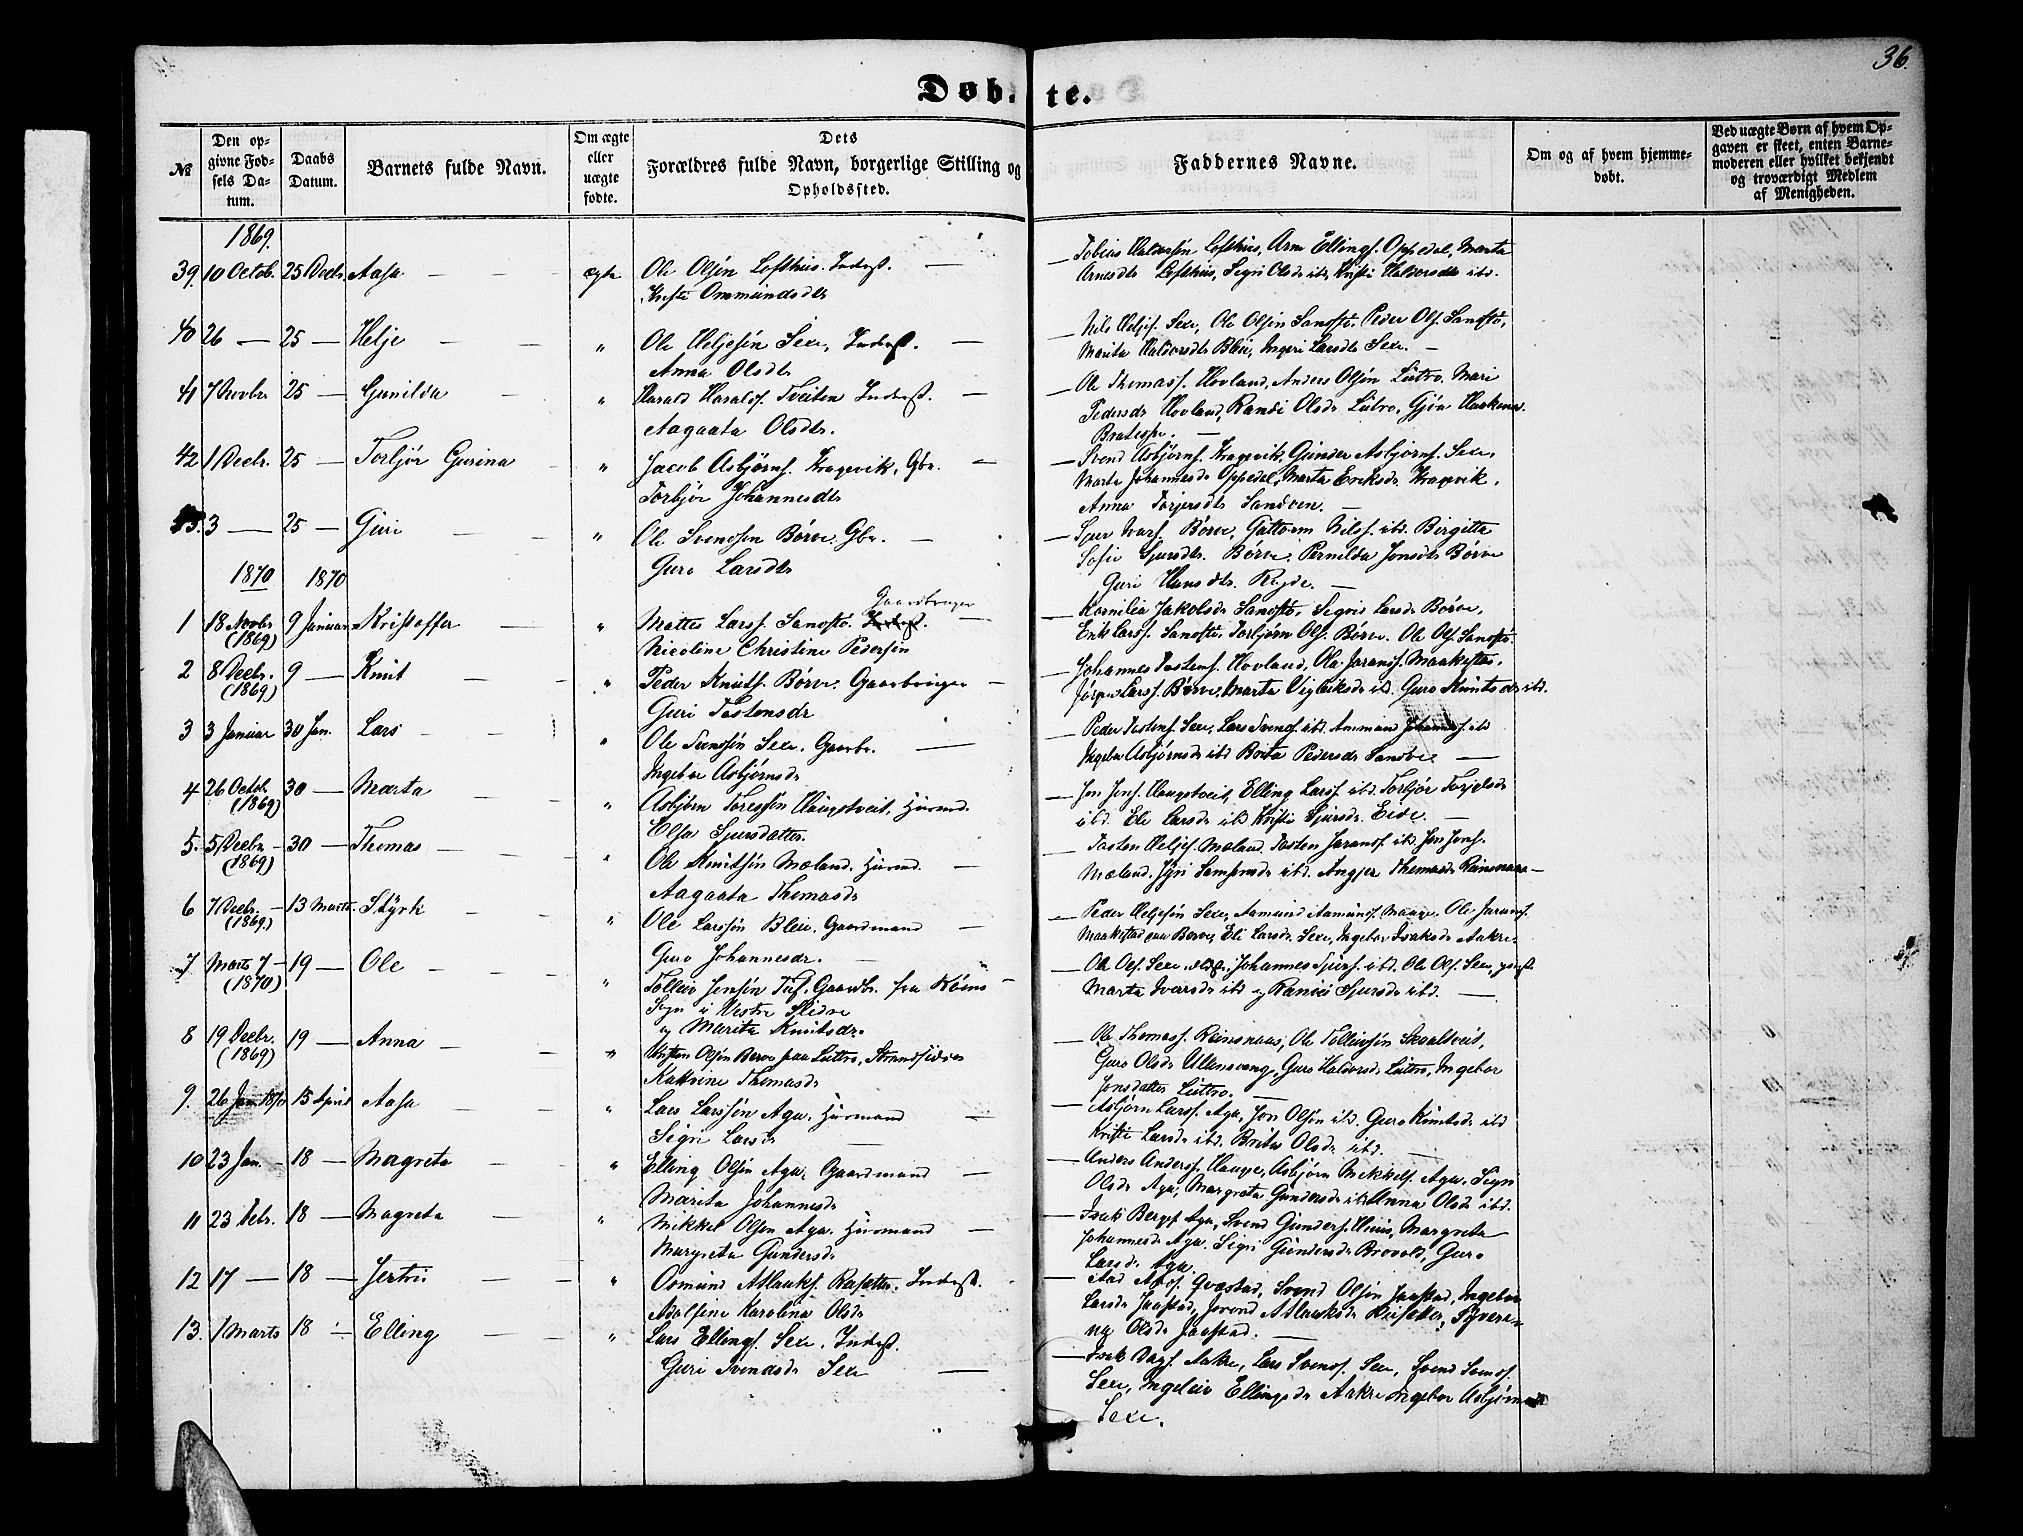 36.
Døbte.
№
Den opgivne Fødsels Datum.
Daabs Datum.
Barnets fulde Navn.
Om ægte eller uægte fødte.
Dets Forældres fulde Navn, borgerlige Stilling og Opholdssted.
Faddernes Navne.
Om og af hvem hjemmedøbt.
Ved uægte Børn af hvem Opgaven er skeet, enten Barnemoderen eller hvilket bekjendt og troværdigt Medlem af Menigheden.
1869.
39. 10 Octob. 25 Decbr. Aasa — ægte Ole Olsøn Lofthus. Inderst. —
Ommundsdtr
— Tobias Haldorsøn Lofthus, Arne Ellings. Oppedal, Marta
Arnesdtr Lofthus, Sigri Olsdr ibd, Kristi Haldorsdtr ibd.
40 26 — 25 — Helje — " Ole Heljesøn Sexe, Inderst. —
Anna Olsdtr
— Nils Heljes. Sexe, Ole Olsøn Sandstø, Peder Ols. Sandstø,
Marita Haldorsdtr Bleie, Ingeri Larsdtr Sexe. —
41 7 Novbr. 25 — Gunilda — " Harald Haralds. Tveiten Inderst. —
Aagaata Olsdtr.
— Ole Thomass. Hovland, Anders Olsøn Lutro. Mari
Pedersdr Hovland, Randi Olsdr Lutro, Gjøa Haakons
42 1 Decbr. 25 — Torbjør Gurina — " Jacob Asbjørns. Kragevik, Gbr. —
Torbjør Johannesdtr
— Svend Asbjørns. Kragevik, Gunder Asbjørns. Sexe,
Marta Johannesdr Oppedal, Marta Eriksdr Kragevik,
Anna Torjersdtr Sandven. —
3 — 25 — Guri — " Ole Svendsøn Børve. Gbr. —
Guro Larsdtr
— Sjur Ivars. Børve, Guttorm Nils. ibd. Birgitta
Sofie Sjursdtr. Børve, Pernilda Jonsdtr Børve
Guri Hansdtr. —
1870 1870
1 18 Novbr. (1869) 9 Januar Kristoffer — " Mattes Larss. Sandstø. Gaardbruger —
Nicoline Christine Pedersen
— Kornelia Jakobsdr Sandstø, Sigrid Larsdr Børve,
Erik Larss. Sandstø, Torbjørn Ols. Børve. Ole Ols. Sandstø
2 8 Decbr. (1869) 9 — Knut — " Peder Knuts. Børve. Gaardbruger —
Guri Tostensdr
— Johannes Tostens. Hovland, Ole Jarands. Maakestad,
Jørgen Larss. Børve, Marta Vigleiksdr ibd. Guro Knutsdr ibd.
3 3 Januar 30 Jan. Lars — " Ole Svendsøn Sexe. Gaardbr. —
Ingebor Asbjørnsdr
— Peder Tostens. Sexe, Lars Svends. ibd Ammund Johannes. ibd
Ingebor Asbjørnsdr ibd Brita Pedersdr Sandve. —
4 26 Octob. (1869) 30 — Marta — " Asbjørn Toressøn Haugstveit, Huusmd.
Elsa Sjursdatter.
— Jon Jons. Haugstveit, Elling Larss. ibd. Torbjør Torjelsdr
ibd. Eli Larsdr ibd Kristi Sjursdr Eide. —
5. 5 Decbr. (1869) 30 — Thomas — " Ole Knutsøn Mæland. Huusmd. —
Aagaata Thomasdr
— Tosten Heljes. Mæland, Tosten Jarands. ibd. Jon Jons.
Mæland, Samsonsdr ibd. Angjer Thomasdr Reinsnaas —
6 7 Decbr. (1869.) 13 Marts. Styrk — " Ole Larssøn Bleie. Gaardmand —
Guro Johannesdr. —
— Peder Heljesøn Sexe, Aamund Aamunds. Mauge. Ole Jarands.
Maakestad paa Børve, Eli Larsdr. Sexe, Ingebor Isaksdr Aakre.
7 Marts 7 (1870) 19 — Ole — " Tolleiv Jensøn Tuf. Gaardbr. fra
Sogn i Vestre Slidre
og Marita Knutsdr.
— Ole Ols. Sexe, ældst. Johannes Sjurs. ibd. Ole Ols. Sexe, yngst.
Marta Ivarsdr ibd og Randi Sjursdr ibd. —
8 19 Decbr. (1869) 19 — Anna — " Olsøn Børve paa Lutro, Strandsidder
Katrine Thomasdr
— Ole Thomass. Reinsnaas, Ole Tolleivsøn Skaaltveit,
Guro Olsdr Ullensvang, Guro Haldorsdr Lutro, Ingebor
Jonsdatter Lutro. —
9. 26 Jan. 1870 15 April Aasa — " Lars Larssøn Aga. Huusmand —
Sigri Larsdr —
— Asbjørn Larss. Aga, Jon Olsøn ibd. Guro Knutsdr ibd
Kristi Larsdr ibd. Brita Olsdr ibd. —
10 23 Jan. 18 — Magreta — " Elling Olsøn Aga. Gaardmand —
Marita Johannesdr
— Anders Anderss. Hauge, Asbjørn Mikkels. Aga. Sigri
Olsdr Aga, Margreta Gundersdr ibd Anna Olsdr ibd.
11 23 Febr. 18 — Magreta — " Mikkel Olsøn Aga. Huusmand —
Margreta Gundersdr
— Isak Bergs. Aga, Svend Gunders. Huus, Margreta
Johannesdr Aga. Sigri Gundersdr Provold, Guro
Larsdr Aga.
12 17 — 18 — Jertru — " Osmund Atlaks. Raisetter. Inderst.
Adolfine Karolina Olsdr
Qvæstad, Svend Olsøn Jaastad, Ingebor
Larsdr Jaastad, Jorend Atlaksdr Reisetter, Syveri-
na Olsdr Jaastad. —
13. 1 Marts 18 — Elling — " Lars Ellings. Sexe. Inderst.
Guri Svendsdr Sexe —
— Isak Dags. Aakre, Lars Svends. Sexe, Svend Svends.
Sexe, Ingeleiv Ellingsdr Aakre Ingebor Asbjørnsdr
Sexe.